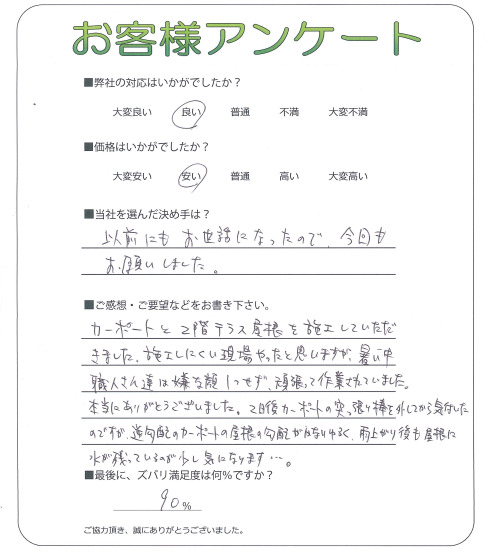 お客様アンケート
■弊社の対応はいかがでしたか？
大変良い 良い 普通 不満 大変不満
■価格はいかがでしたか？
大変安い 安い 普通 高い 大変高い
■当社を選んだ決め手は？
以前にもお世話になったので、今回も
お願いしました。
■ご感想・ご要望などをお書き下さい。
カーポートと2階テラス屋根を施工していただ
きました。施工しにくい現場やったと思いますが、暑い中
職人さん達は嫌な顔1つせず、頑張って作業されていました。
本当にありがとうございました。2日後カーポートの突っ張り棒を外してから気付いた
のですが、逆勾配のカーポートの屋根の勾配がかなりゆるく、雨上がり後も屋根に
水が残っているのが少し気になります…。
■最後に、ズバリ満足度は何％ですか？
90％
ご協力頂き、誠にありがとうございました。